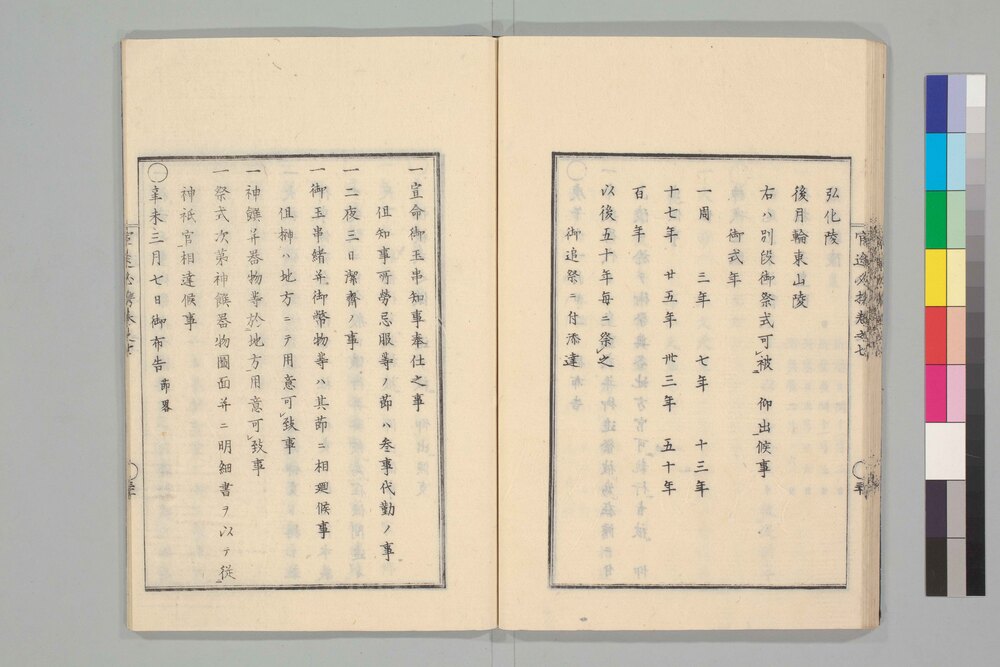 弘化陵
後月輪東山陵
右ハ別段御祭式可被 仰出候事
御式年
一周 三年 七年 十三年
十七年 廿五年 卅三年 五十年
百年
以後五十年毎ニ祭之
御追祭ニ付添達
一宣命御玉串知事奉仕之事
但知事所労忌服等ノ節ハ参事代勤ノ事
一二夜三日潔齋ノ事
一御玉串緒并御幣物等ハ其節ニ相廻候事
但榊ハ地方ニテ用意可致事
一神饌并器物等於地方用意可致事
一祭式次第神饌器物圖面并ニ明細書ヲ以テ従
神祇官相達候事
○辛未三月七日御布告 節畧